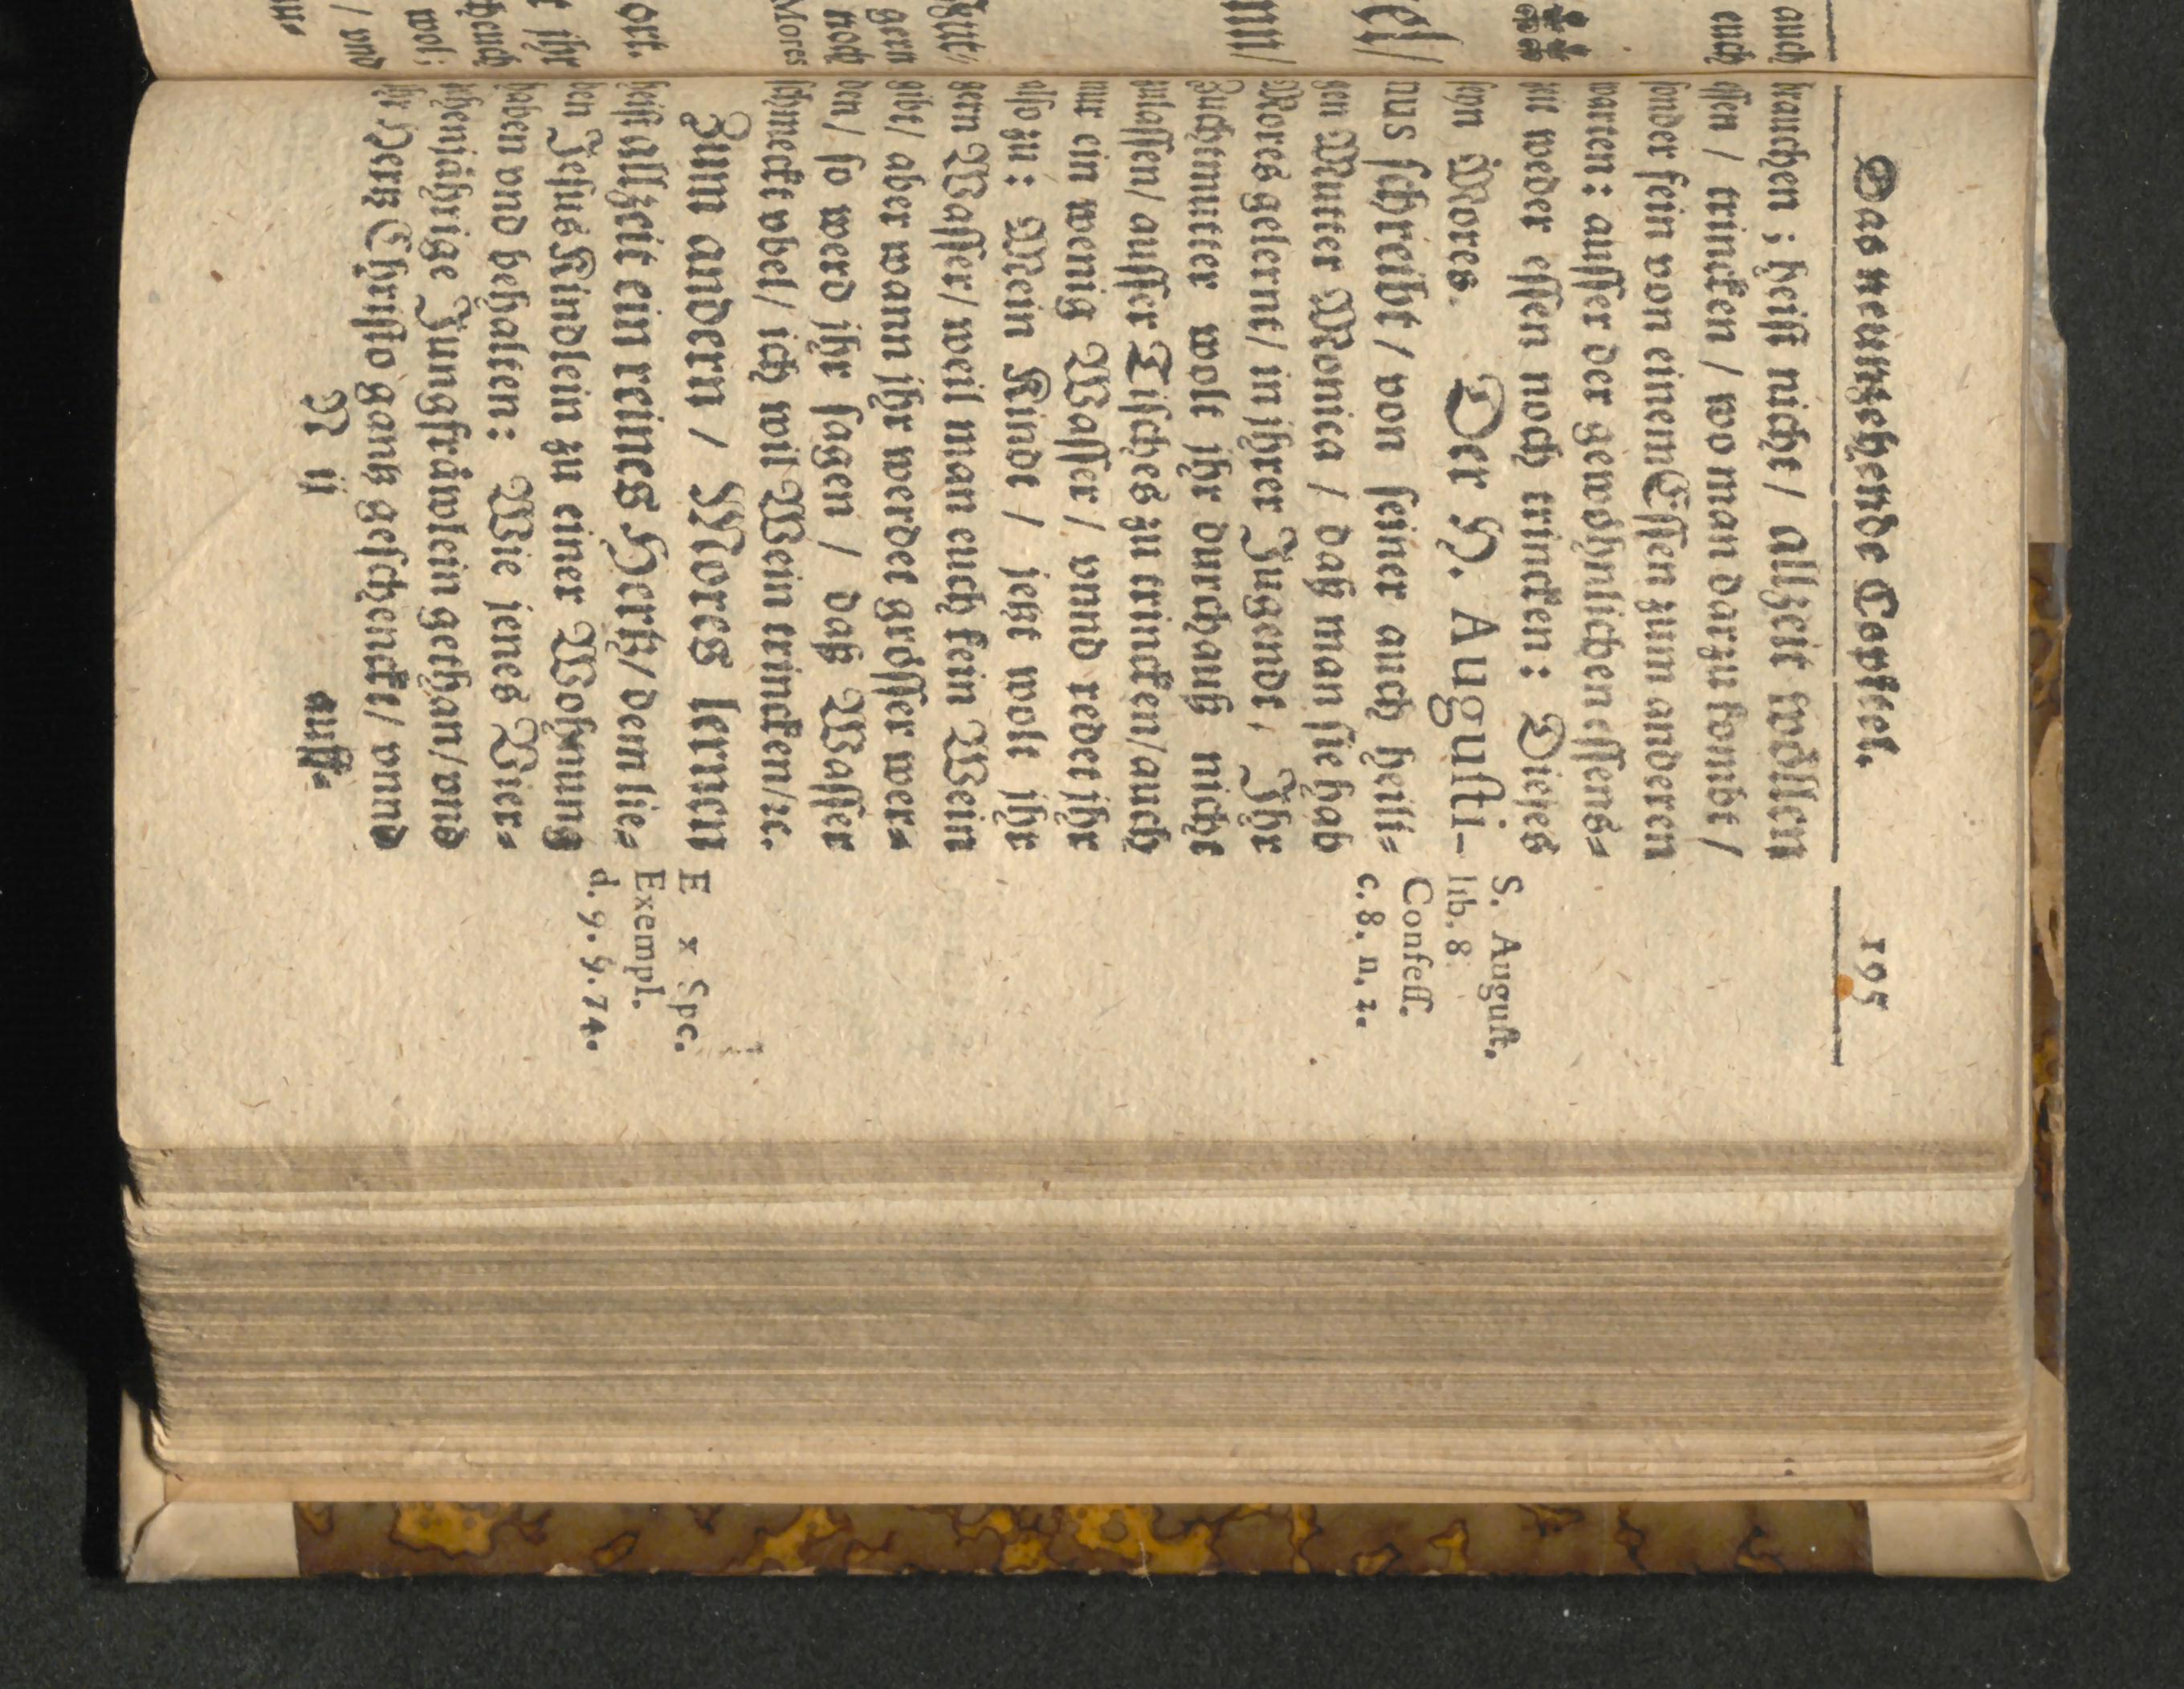 Das neunzehende Capitel. 195
brauchen; heist nicht / allzeit wöllen
essen / trincken / wo man darzu kombt /
sonder kein von einem Essen zum anderen
warten: ausser der gewöhnlichen essens-
zeit weder essen noch trincken: Dieses
seyn Mores. Der H. Augusti-
nus schreibt / von seiner auch heili-
gen Mutter Monica / daß man sie hab
Mores gelernt / in ihrer Jugendt / Ihr
Zuchtmutter wolt ihr durchauß nicht
zulassen / ausser Tisches zu trincken / auch
nur ein wenig Wasser / vnnd redet ihr
also zu: Mein Kindt / jetzt wolt ihr
gern Wasser / weil man euch kein Wein
gibt / aber wann ihr werdet grösser wer-
den / so werd ihr sagen / daß Wasser
schmeckt vbel / ich will Wein trincken / ꝛc.
Zum andern / Mores lernen
heist allzeit ein reines Hertz / dem lie-
ben Jesus Kindlein zu einer Wohnung
haben vnd behalten: Wie jenes Vier-
zehenjährige Jungfräwlein gethan / vnd
ihr Hertz Christo gantz geschenckt / vnnd
N ij auff-
S. August.
lib. 8.
Confess.
c. 8. n. 2.
Ex Spec.
Exempl.
d. 9. §. 74.
auch
euch
ell/
mm/
gern
noch
Mores
ort.
t ihr
wol;
/ vnd